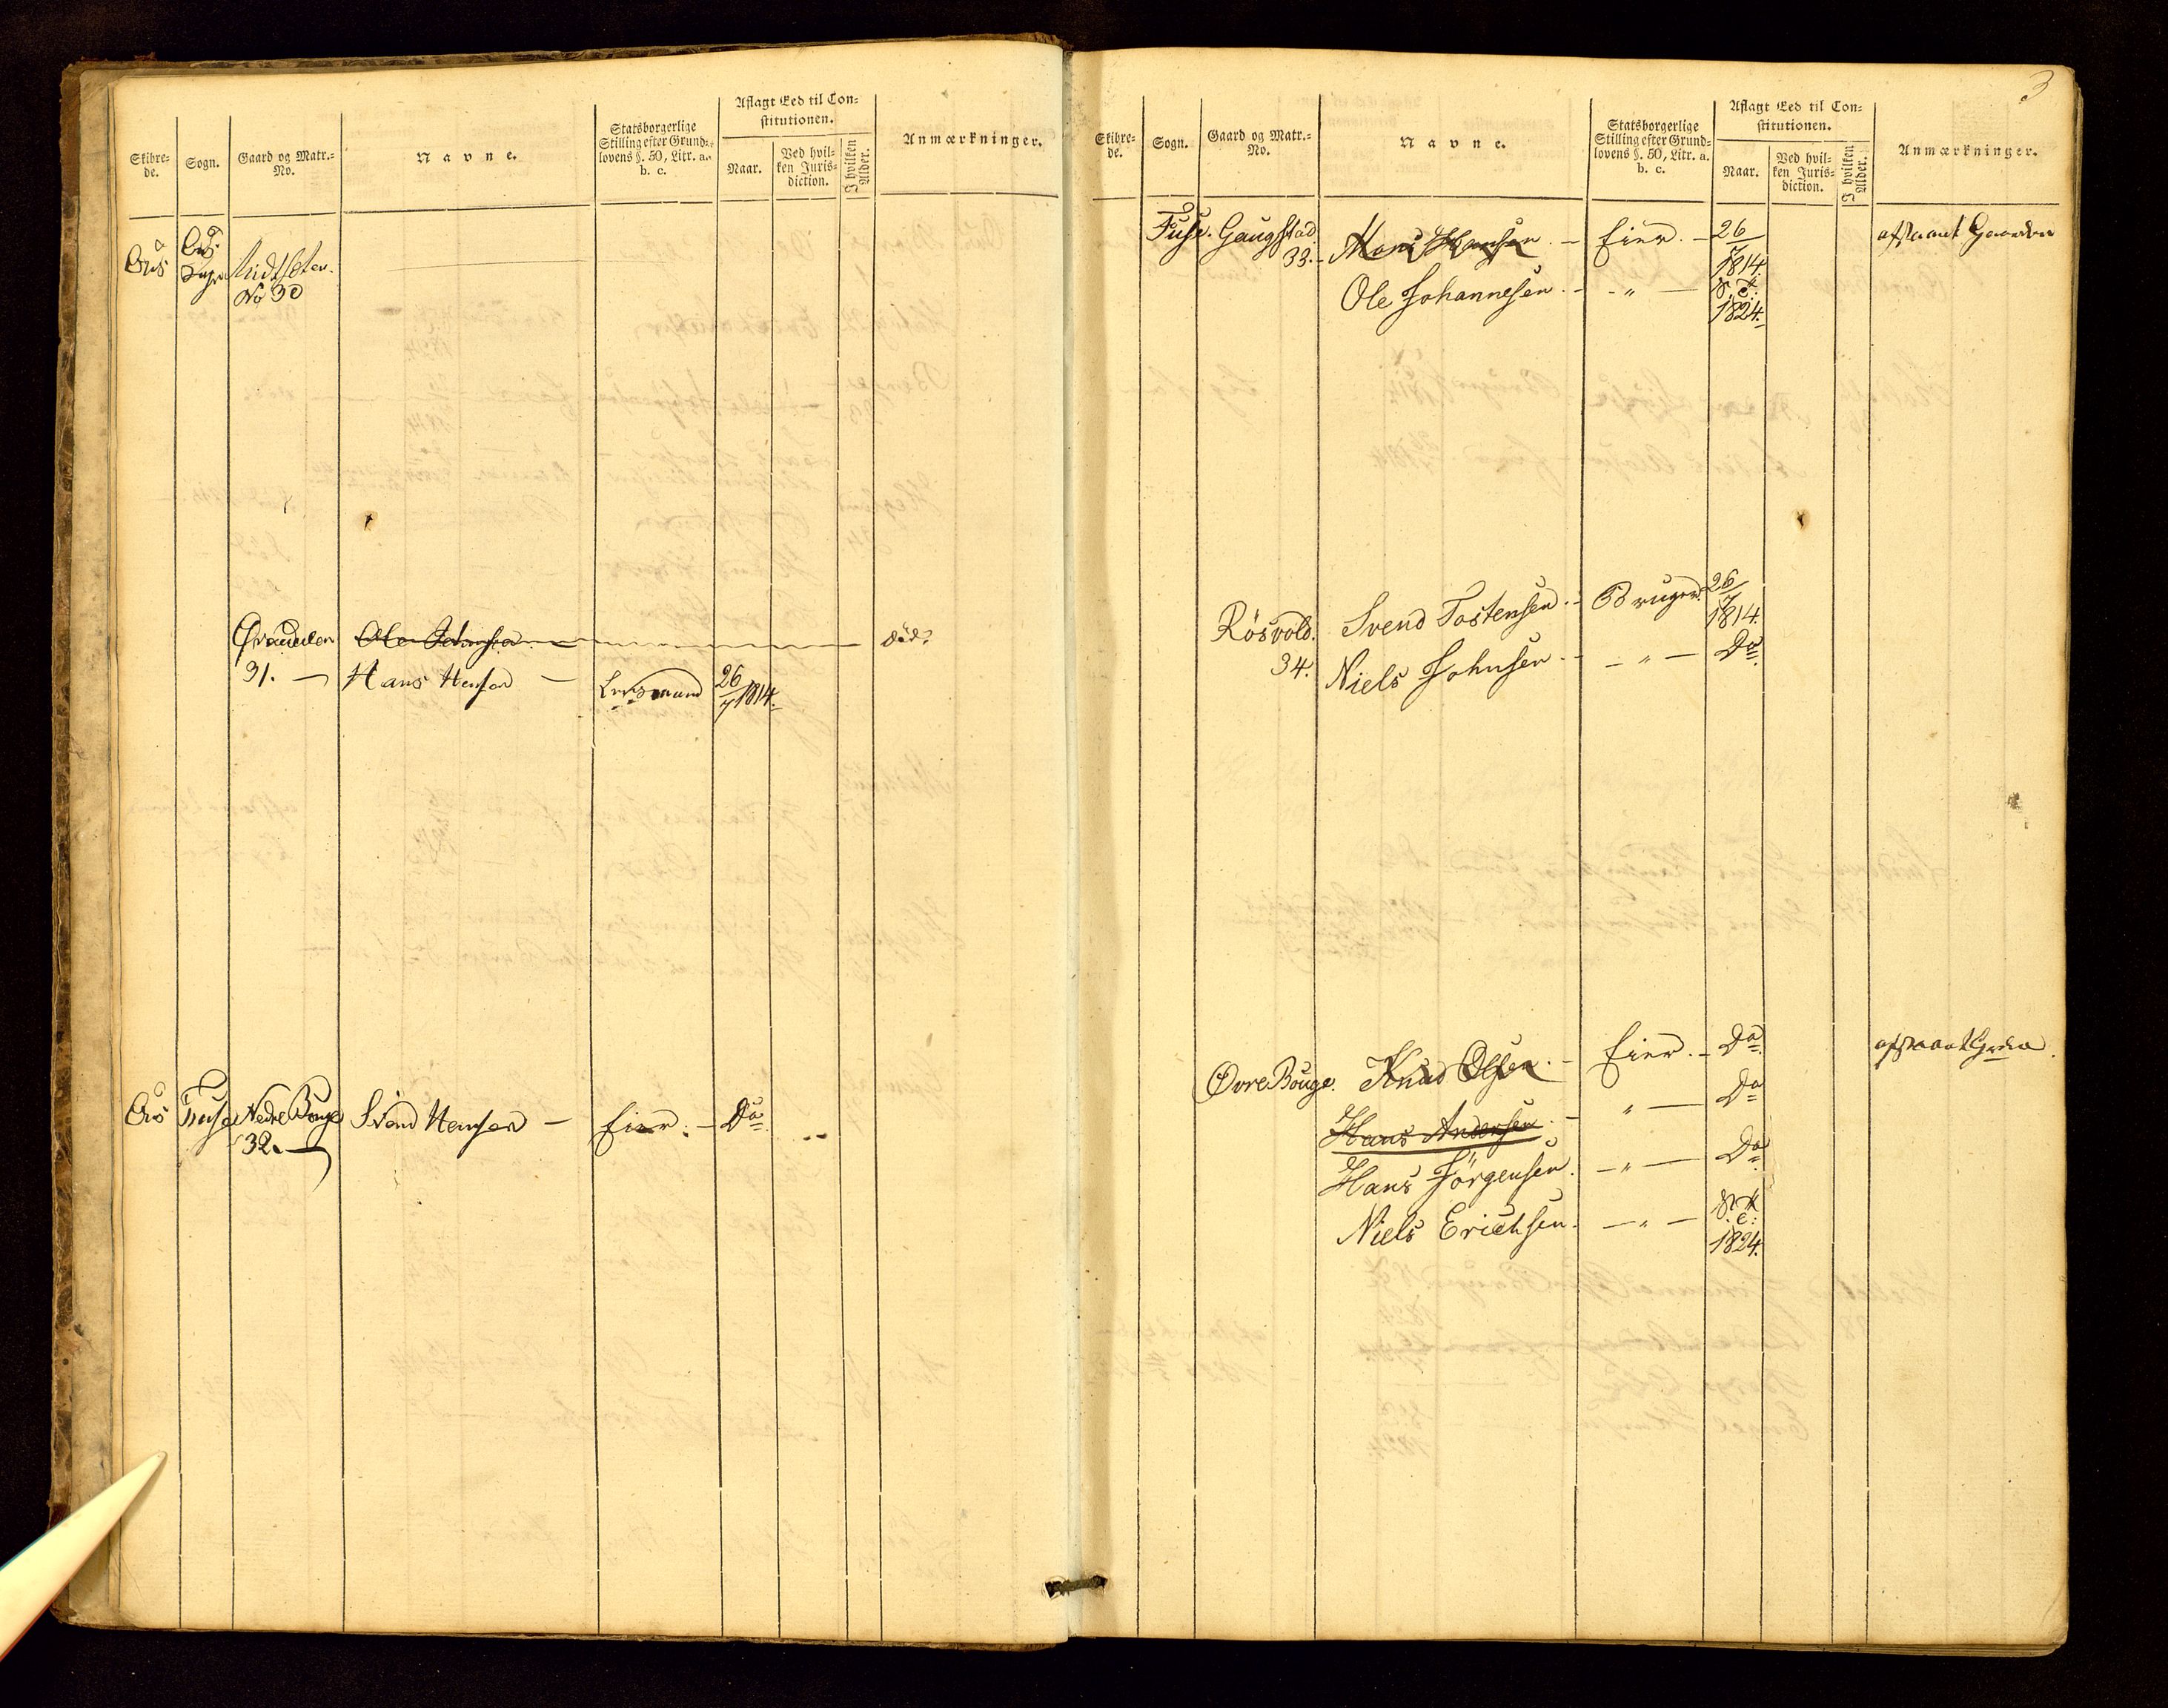 Skibre-
de.
Sogn.
Gaard og Matr.-
No.
Navne.
Statsborgerlige
Stilling efter Grund-
lovens §. 50, Litr. a.
b. c.
Aflagt Eed til Con-
stitutionen.
Naar.
Ved hvil-
ken Juris-
diction.
I hvilken
Alder.
Anmærkninger.
Ous
Ous
Sogn
No 30
Øvredalen
Ole Johnsen
død
31.
Hans Hansen
Leismand
26/7 1814.
Ous
Fuse
Nedre Bouge
Svend Hansen
Eier.
Do
32.
3
Skibre-
de.
Sogn.
Gaard og Matr.-
No.
Navne.
Statsborgerlige
Stilling efter Grund-
lovens §. 50, Litr. a.
b. c.
Aflagt Eed til Con-
stitutionen.
Naar.
Ved hvil-
ken Juris-
diction.
I hvilken
Alder.
Anmærkninger.
Fuse.
Gaugstad
33.
Mons Hansen
Eier.
26/7
1814.
afstaaet Gaarden
Ole Johannesen
"
1824.
Røsvold.
34.
Svend Tostensen
Bruger
26/7
1814.
Niels Johnsen
"
Do
Øvre Bouge.
Knud Olsen
Eier.
Do
afstaaet Gaarden
Hans Andersen
"
Do
Hans Jörgensen.
"
Do
Niels Erichsen.
"
1824.